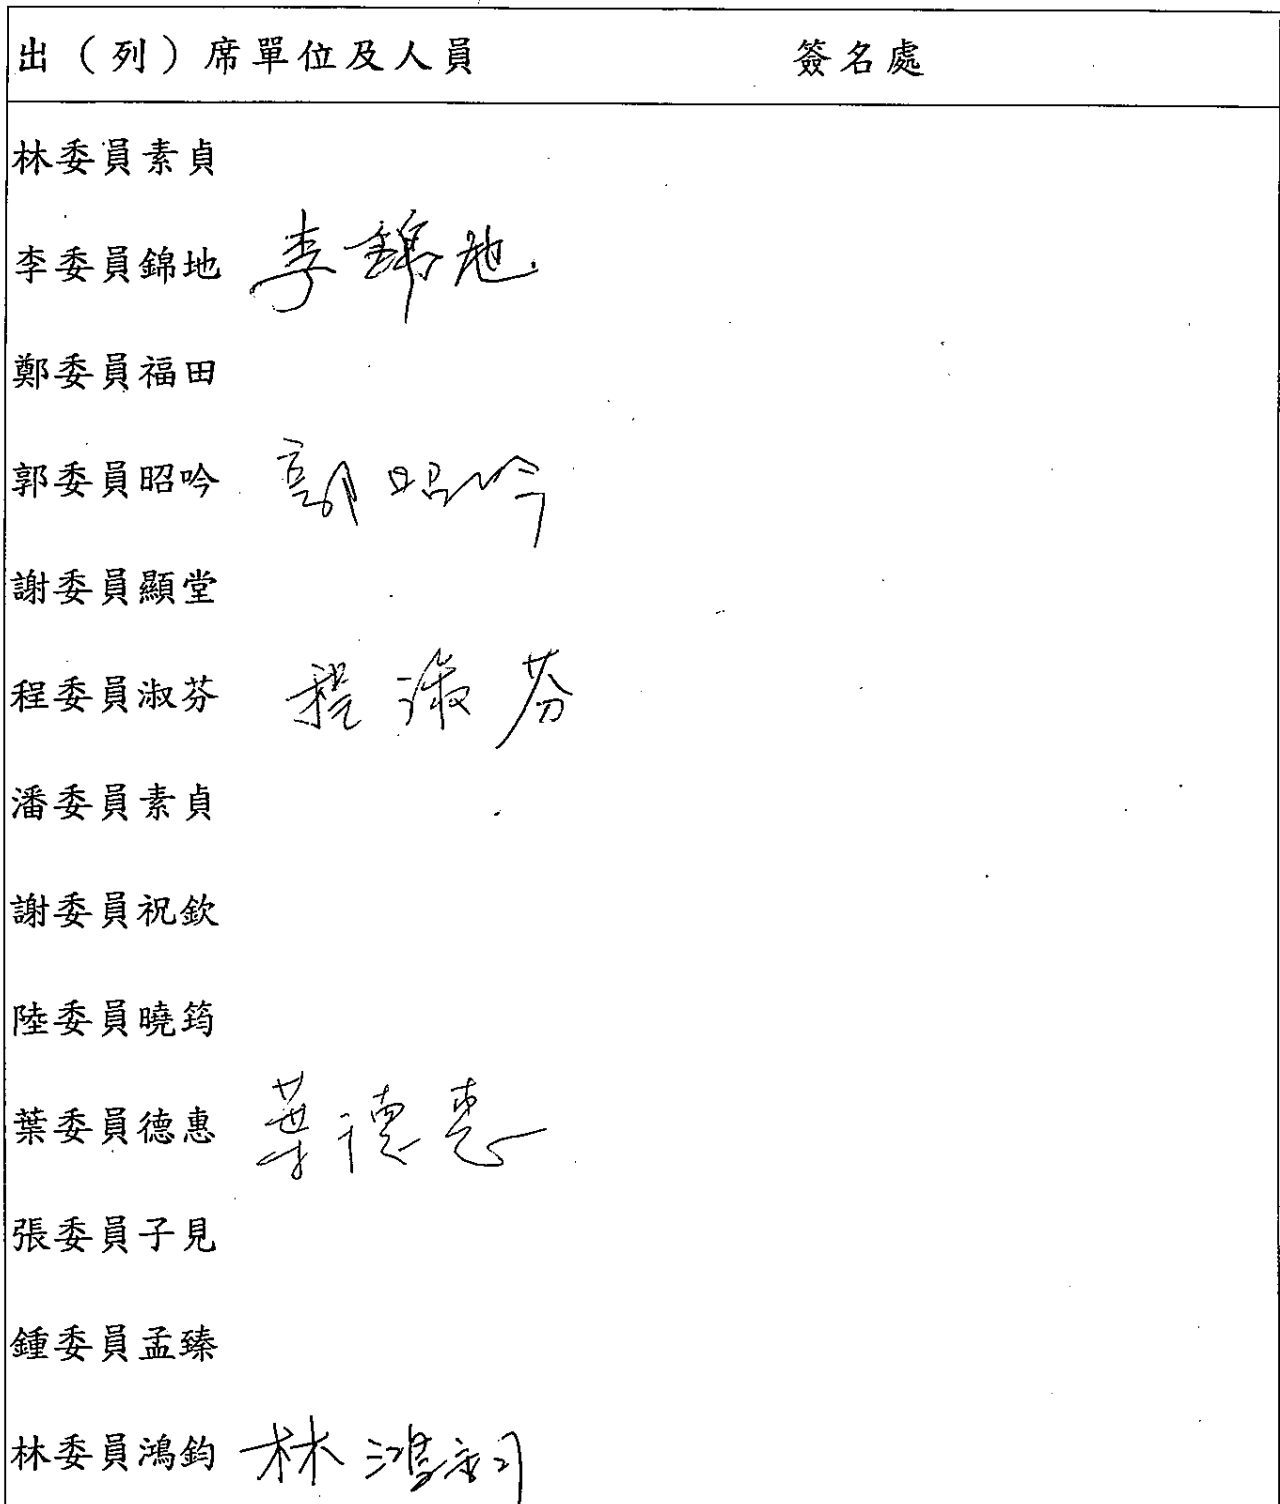 出（列）席單位及人員 簽名處
林委員素貞
李委員錦地 李錦地
鄭委員福田
郭委員昭吟 郭昭吟
謝委員顯堂
程委員淑芬 程淑芬
潘委員素貞
謝委員祝欽
陸委員曉筠
葉委員德惠 葉德惠
張委員子見
鍾委員孟臻
林委員鴻鈞 林鴻鈞